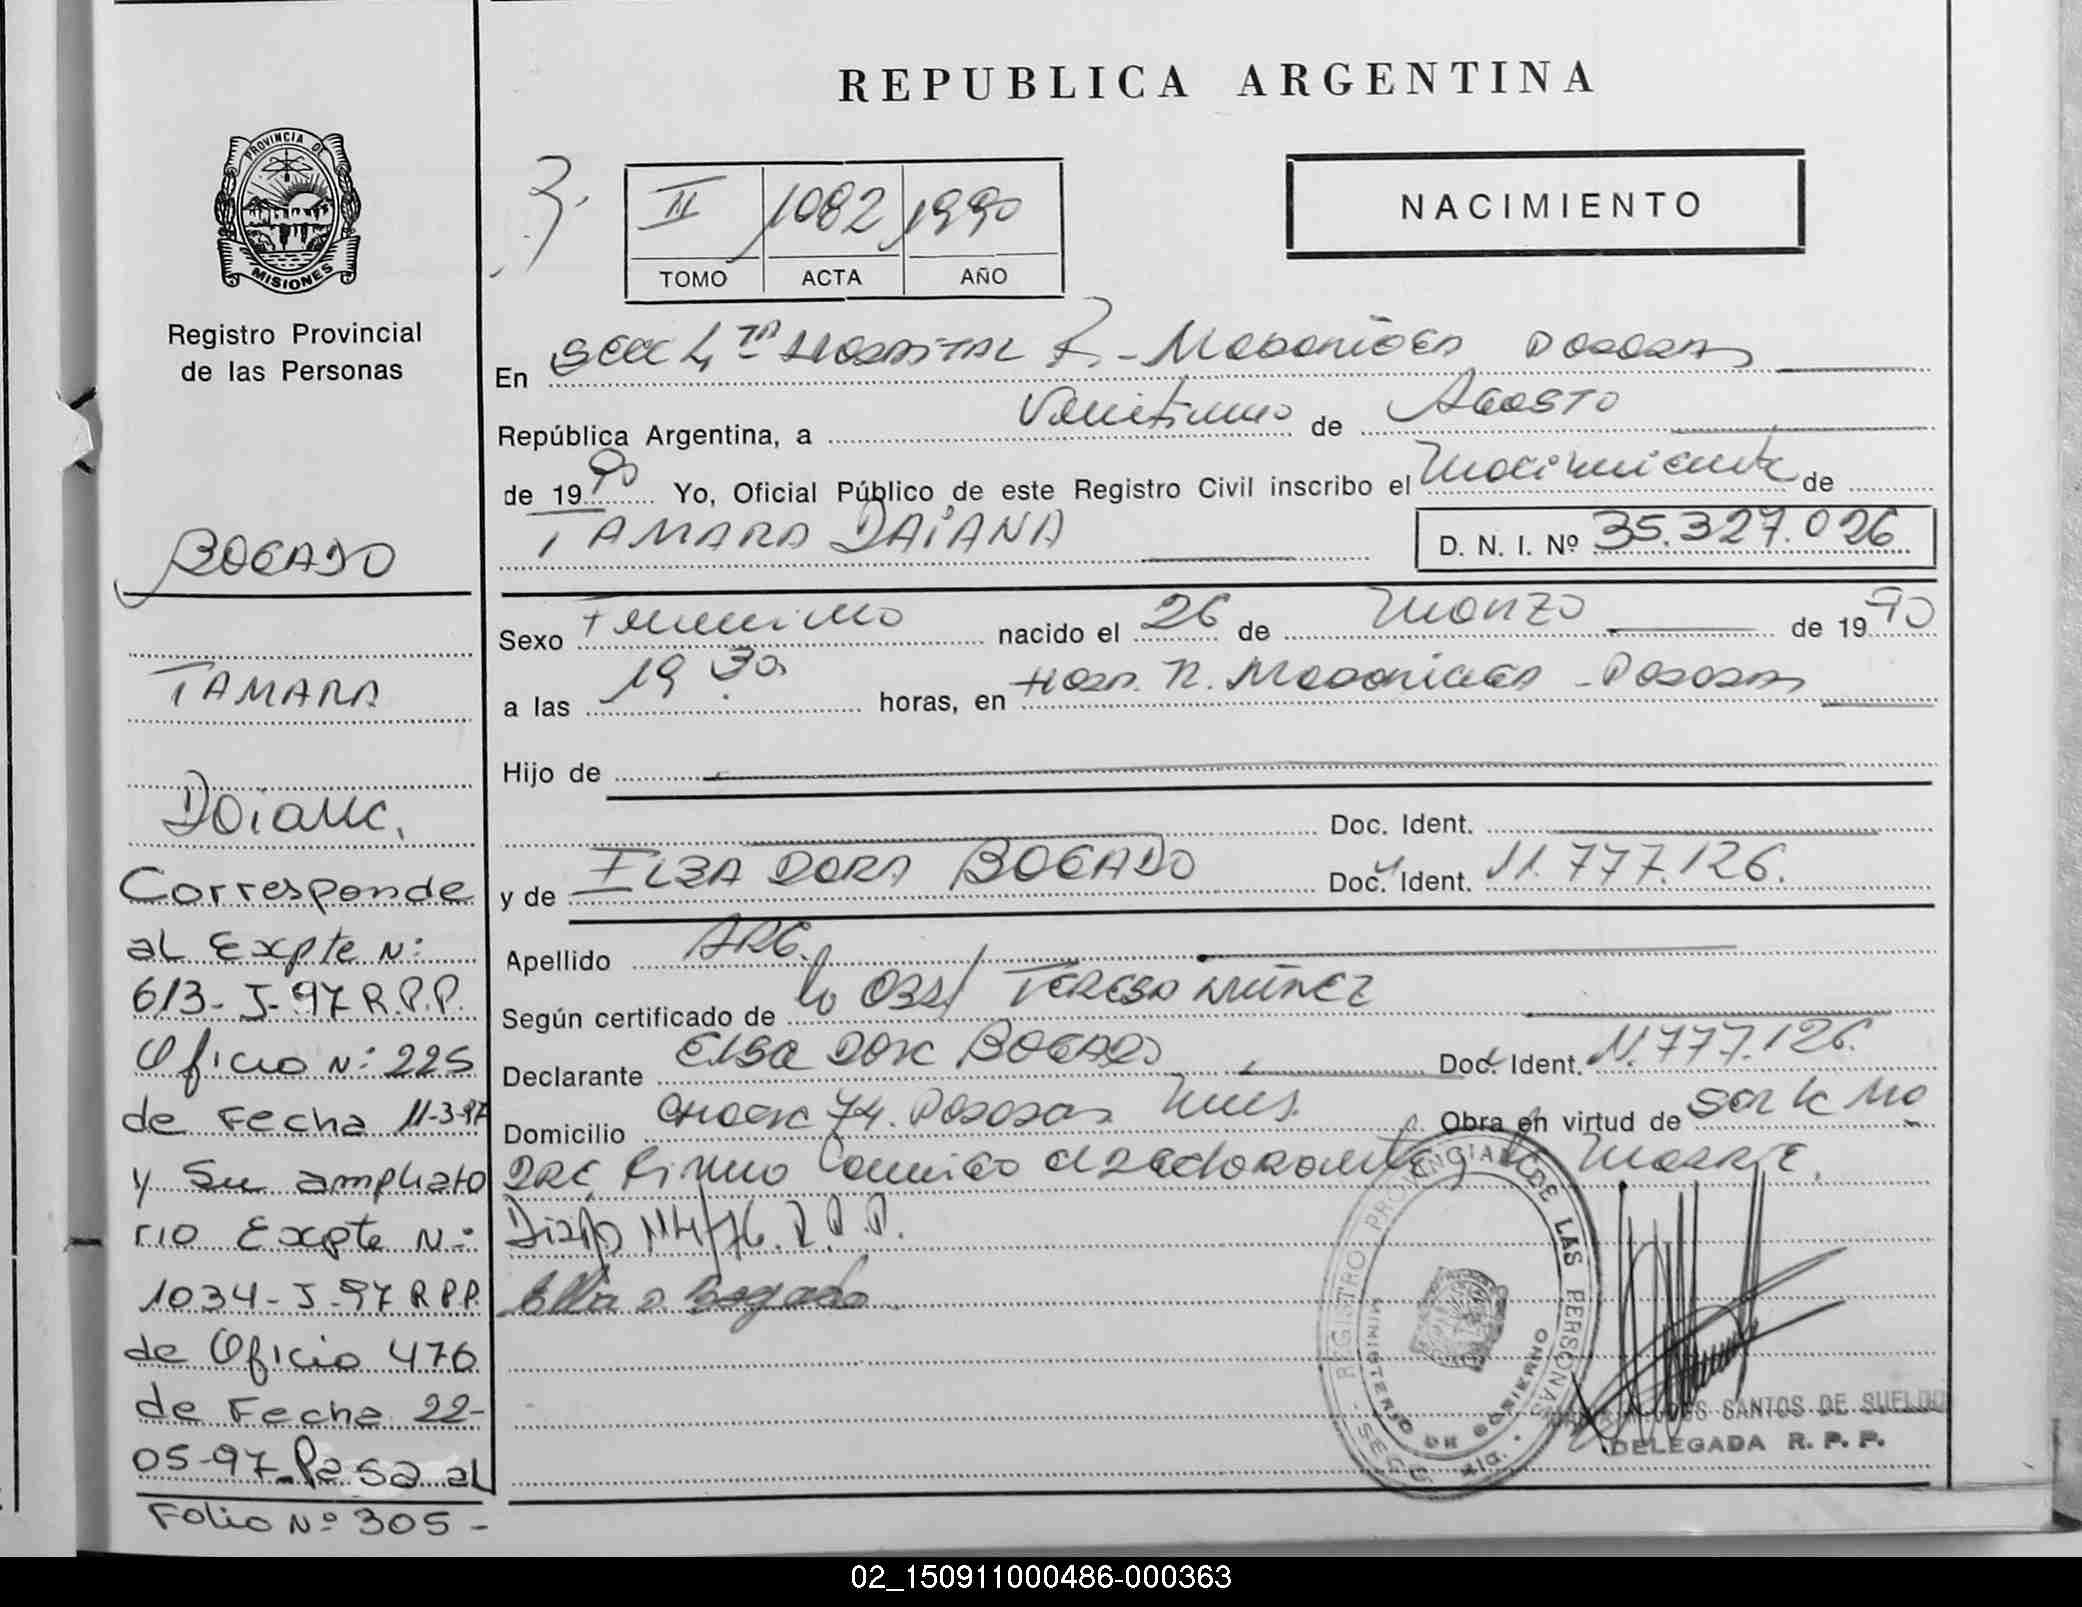 REPUBLICA ARGENTINA
PROVINCIA DE
MISIONES
Registro Provincial
de las Personas
II 1082 1990
TOMO ACTA AÑO
NACIMIENTO
En Secc 4ta Hospital R. Madariaga Posadas
República Argentina, a Veintiuno de Agosto
de 1990 Yo, Oficial Público de este Registro Civil inscribo el Nacimiento de
TAMARA DAIANA D. N. I. Nº 35.327.026
Sexo Femenino nacido el 26 de Marzo de 1990
a las 19 30 horas, en Hosp. R. Madariaga - Posadas
Hijo de
Doc. Ident.
y de ELSA DORA BOGADO Doc. Ident. 11.777.126.
Apellido ARG.
Según certificado de la Obst TERESA NUÑEZ
Declarante Elsa Dora BOGADO Doc. Ident. 11.777.126.
Domicilio 74. Posadas Mnes. Obra en virtud de ser la Ma
dre, Firma Conmigo la Madre.
R.P.P.
Elsa D Bogado
BOGADO
TAMARA
Daiana.
Corresponde
al Expte N:
613-J-97 R.P.P.
Oficio N: 225
de Fecha 11-3-97
y Su ampliato
rio Expte N:
1034-J-97 R.P.P.
de Oficio 476
de Fecha 22-
05-97 Pasa al
Folio Nº 305-
REGISTRO PROVINCIAL DE LAS PERSONAS
MINISTERIO DE GOBIERNO
SANTOS DE SUELDO
DELEGADA R. P. P.
02_150911000486-000363